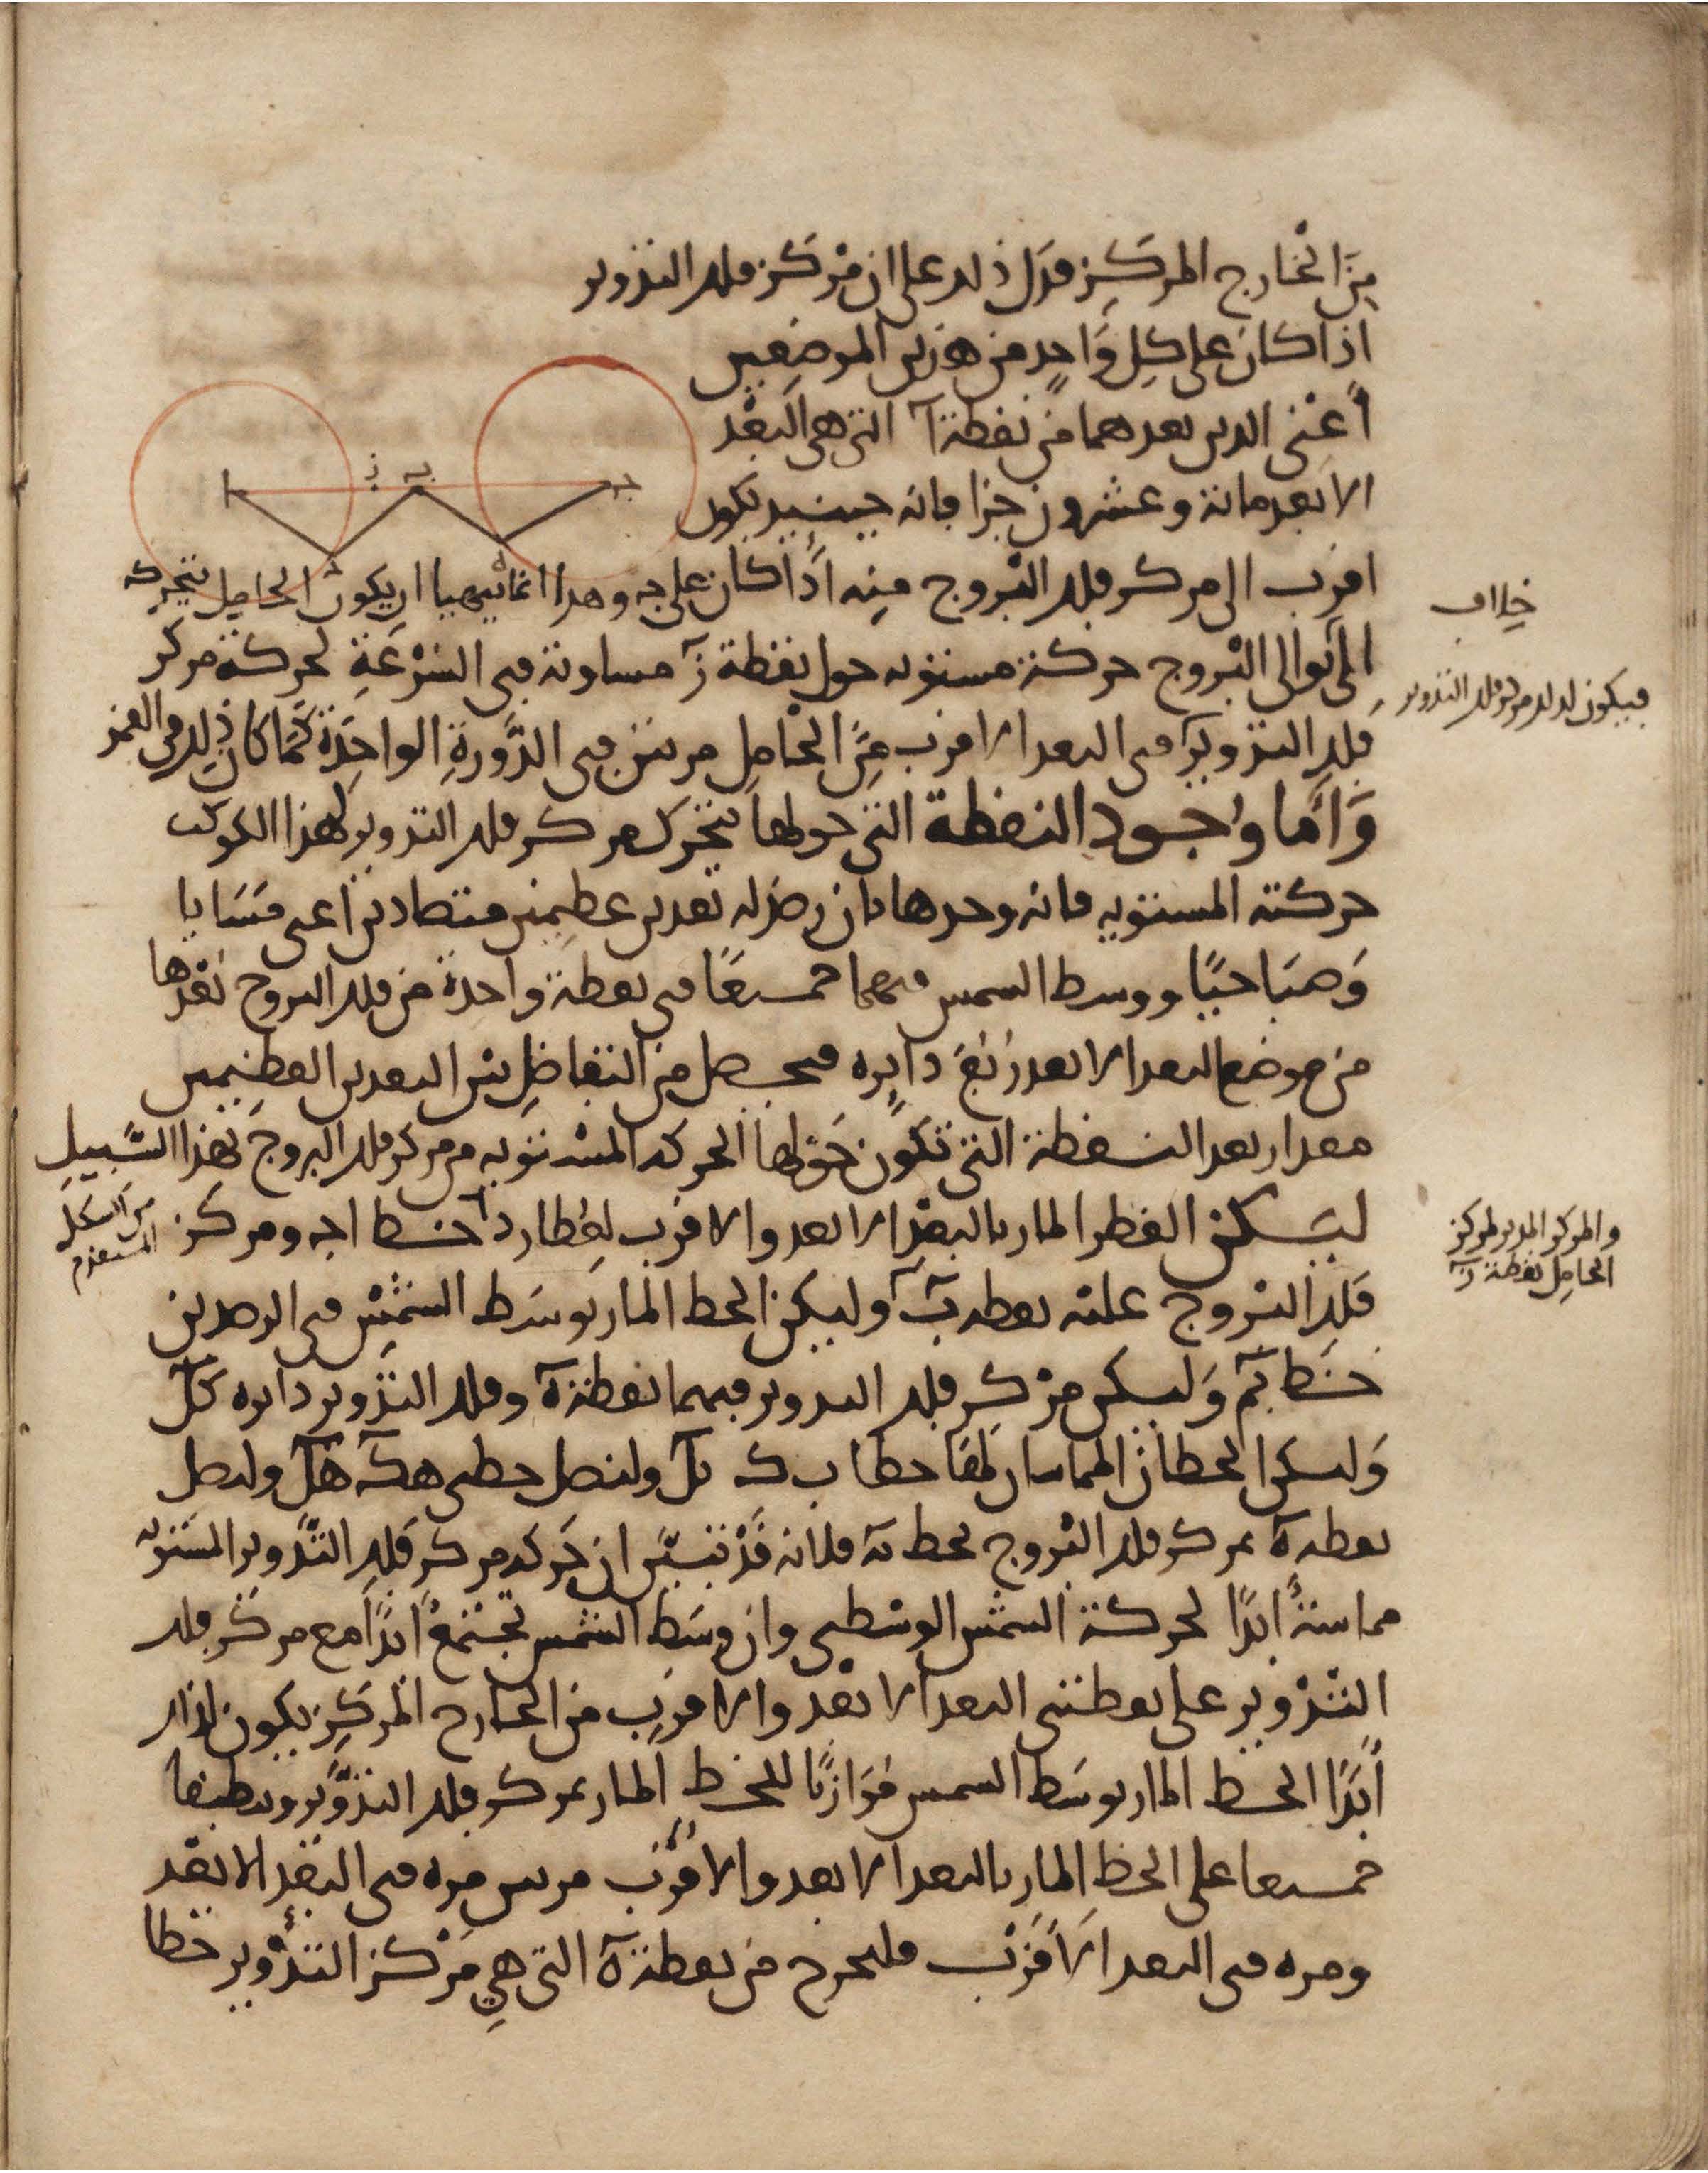 من الخارج المركز فدل ذلك على ان مركز فلك التدوير
اذا كان على كل واحد من هذين الموضعين
أعني الذين بعدهما من نقطة آ التي هي البعد
الابعد مائة وعشرون جزا فانه حينئذ يكون
اقرب الى مركز فلك البروج منه اذا كان على جـ وهذا انما يتهيا ان يكون الحامل يتحرك
الى توالي البروج حركة مستوية حول نقطة زَ مساوية في السرعة لحركة مركز
فلك التدوير في البعد الاقرب من الحامل مرتين في الدورة الواحدة كما كان ذلك في القمر
وأما وجود النقطة التي حولها يتحرك مركز فلك التدوير لهذا الكوكب
حركته المستوية فانه وجدها بان رصد له بعدين عظيمين متضادين اعني مسايا
وصباحيا ووسط الشمس فيهما جميعا في نقطة واحدة من فلك البروج بعدها
من موضع البعد الابعد ربع دايره فحصل من التفاضل بين البعدين العظيمين
مقدار بعد النقطة التي تكون حولها الحركة المستوية من مركز فلك البروج بهذا السبيل
ليكن القطر المار بالبعد الابعد والاقرب لعطارد خط ا جـ ومركز
من الشكل
المتقدم
فلك البروج علية نقطة بَ وليكن الخط المار بوسط الشمس في الرصدين
خط بَم وليكن مركز فلك التدوير فيهما نقطة هَ وفلك التدوير دايره كَل
وليكن الخطان المماسان لها خطا ب ك بَل ولنصل خطي هـك هـل ولنصل
نقطة هَ بمركز فلك البروج بخط بَه فلانه قد تبين ان حركة مركز فلك التدوير المستويه
مماسةً ابدًا لحركة الشمس الوسطى وان وسط الشمس تجتمع ابدًا مع مركز فلك
التدوير على نقطتي البعد الابعد والاقرب من الخارج المركز يكون لذلك
أبدًا الخط المار بوسط الشمس موازيًا للخط المار بمركز فلك التدوير وينطبقا
جميعا على الخط المار بالبعد الابعد والاقرب مرتين مره في البعد الابعد
ومره في البعد الاقرب فليخرج من نقطة هَ التي هي مركز التدوير خطا
خلاف
فيكون لذلك مركز فلك التدوير
والمركز المدير لمركز
الحامل نقطة زَ
ا
ز
بـ
جـ